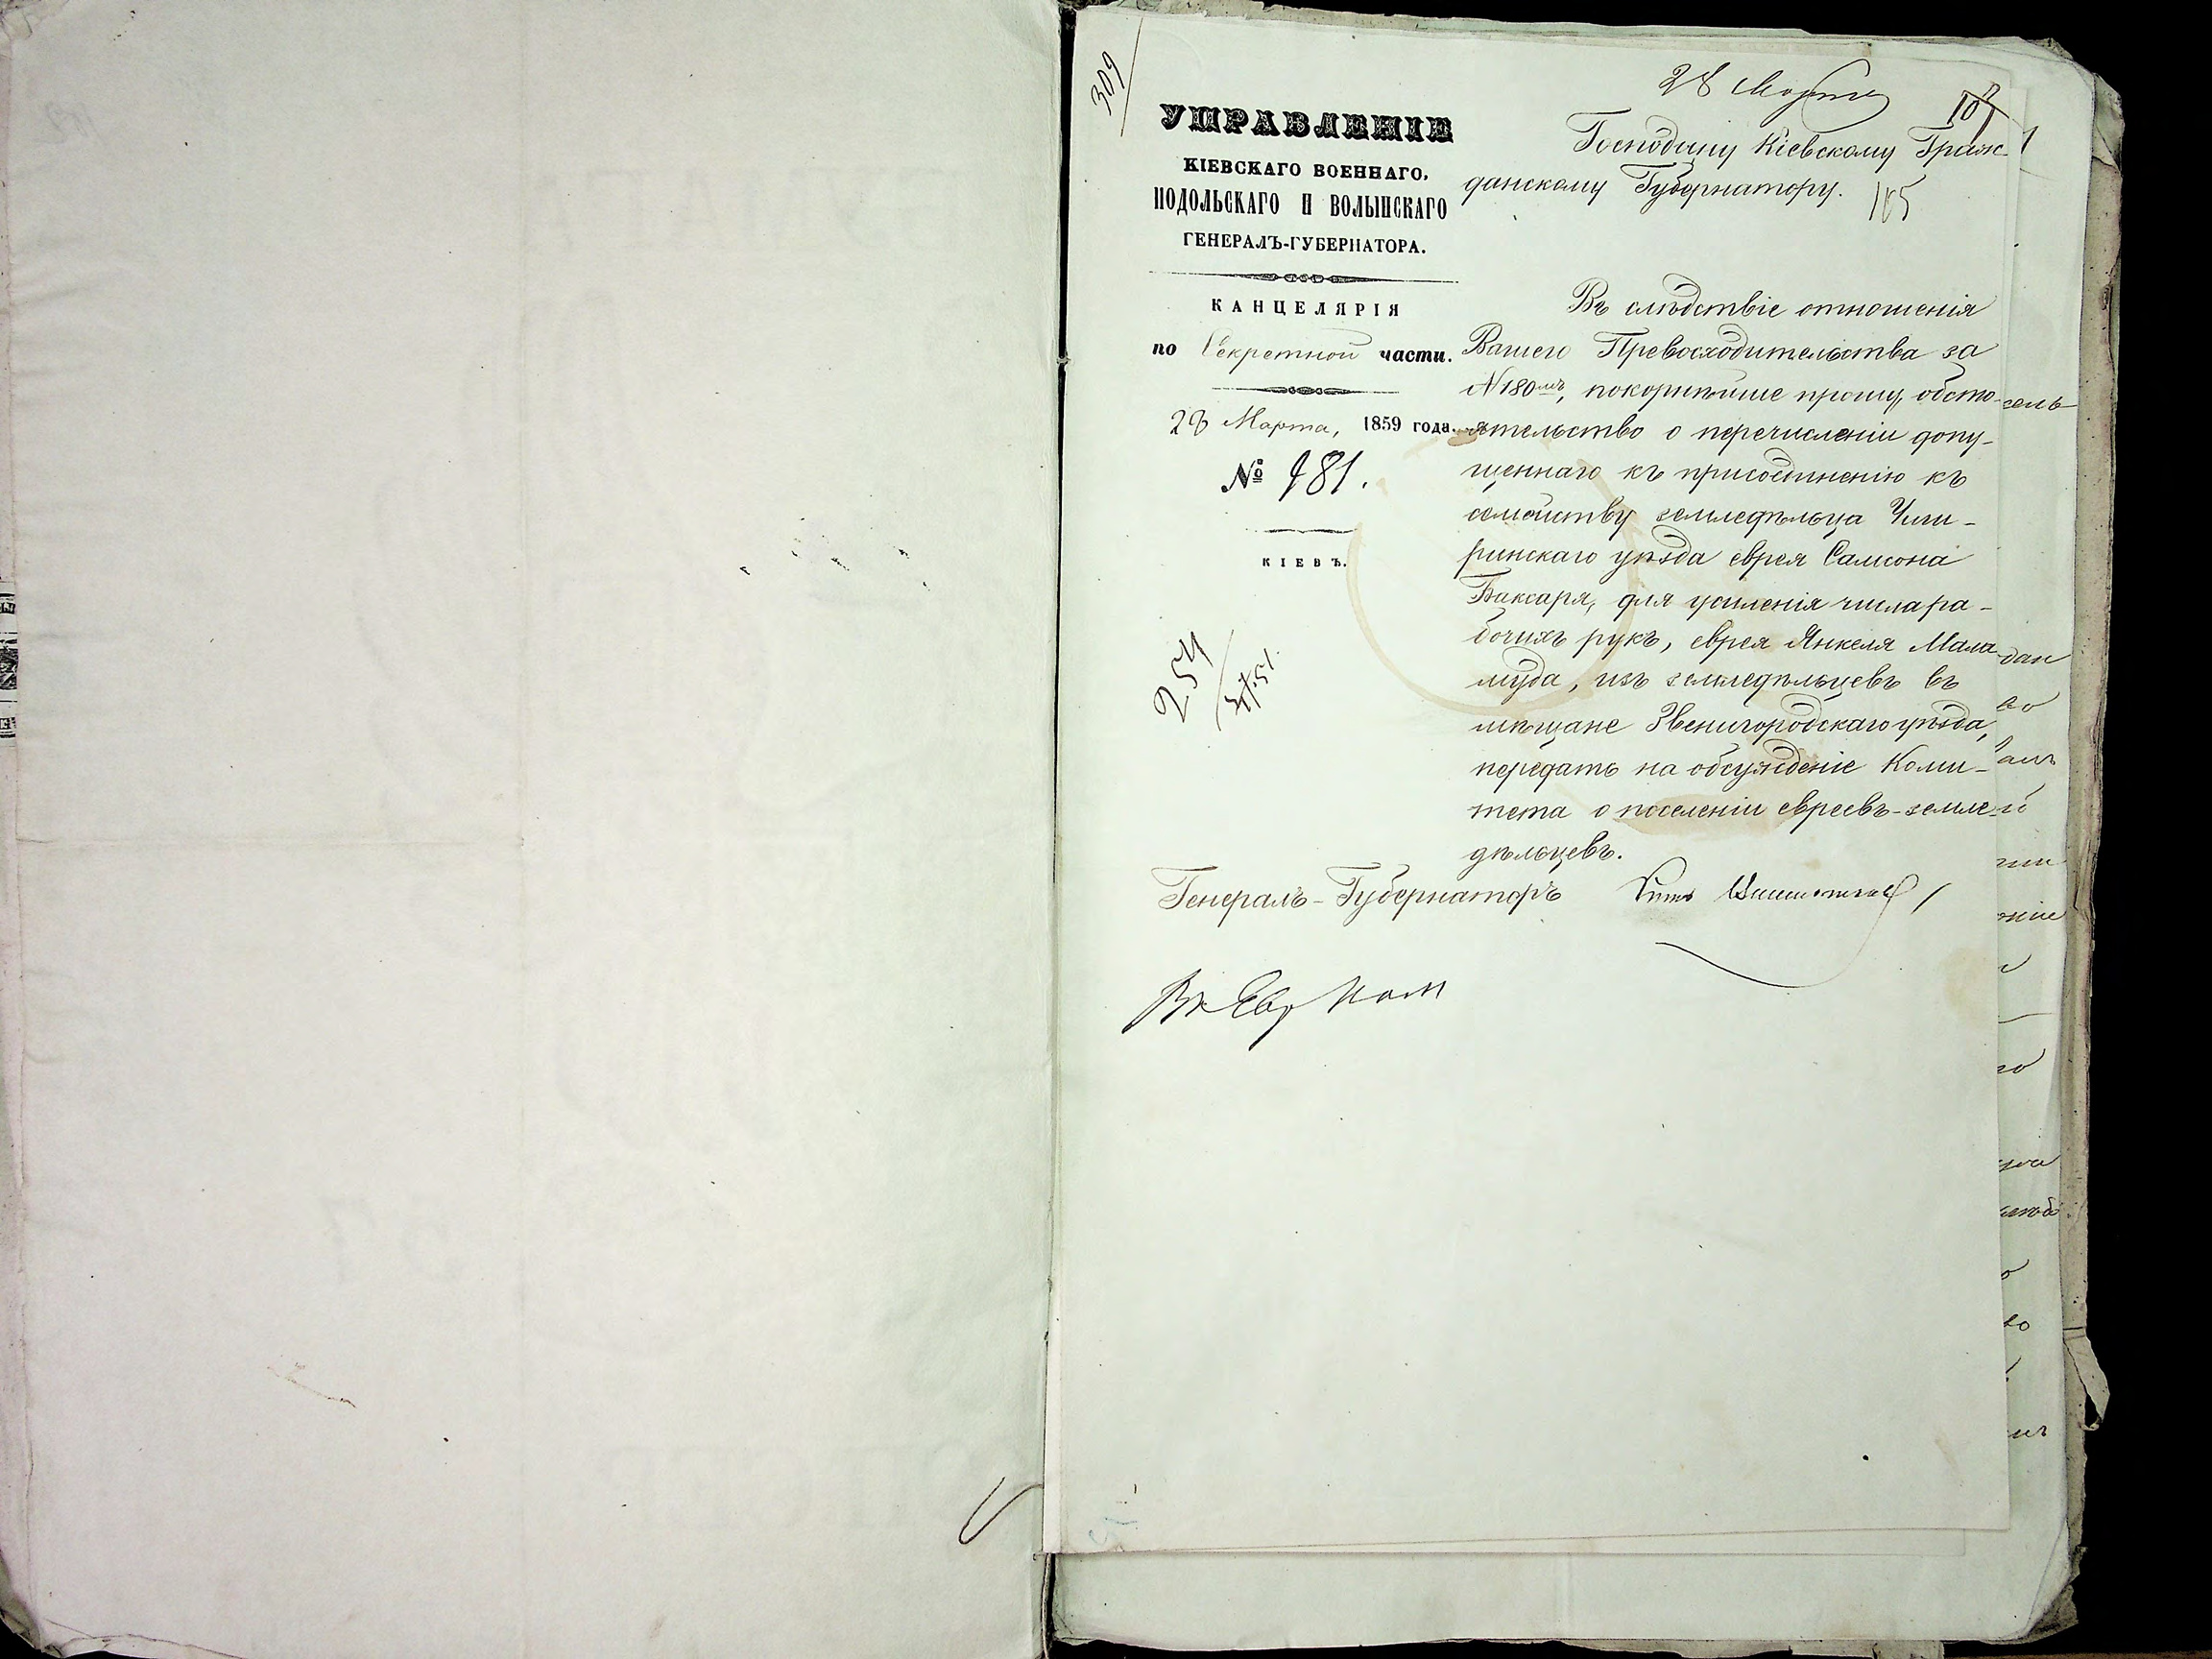 309
28 Марта
УПРАВЛЕНІЕ
КІЕВСКАГО ВОЕННАГО,
ПОДОЛЬСКАГО И ВОЛЫНСКАГО
ГЕНЕРАЛЪ-ГУБЕРНАТОРА.
КАНЦЕЛЯРІЯ
по Секретной части.
28 Марта, 1859 года.
№ 981.
КІЕВЪ.
254
Господину Кіевскому Граж-
данскому Губернатору.
105
Въ слѣдствіе отношенія
Вашего Превосходительства за
N 180мъ, покорнѣйше прошу, обсто-
ятельство о перечисленіи допу-
щеннаго къ присоединенію къ
семейству земледѣльца Чиги-
ринскаго уѣзда еврея Самсона
Баксаря, для усиленія числа ра-
бочихъ рукъ, еврея Янкеля Мала-
муда, изъ земледѣльцевъ въ
мѣщане Звенигородскаго уѣзда,
передать на обсужденіе Коми-
тета о поселеніи евреевъ-земле-
дѣльцевъ.
Генералъ-Губернаторъ
Въ Евр Ком